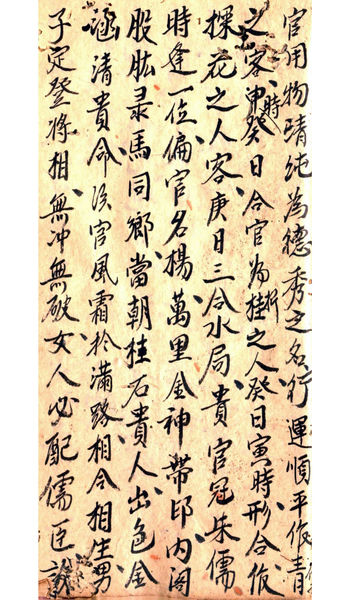 官用物晴純為德秀之名行運順平作青
之客申時癸日合官為折桂之人癸日寅時形合仮
探花之人客庚日三合水局貴官冠朱儒
時逢一位偏官名楊萬里金神帶印内阁
股肱录馬同鄉當朝桂石貴人出色金
涵清貴命官風霜於满路相合相生男
子定登将相無冲無破女人必配儒臣